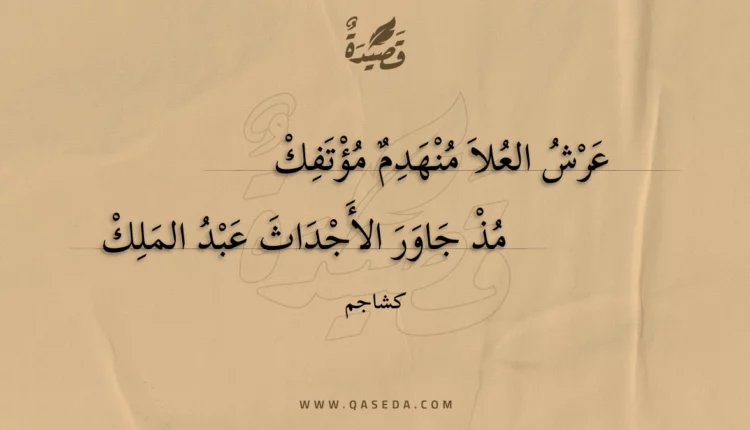 قَصِيْدَةٌ
عَرْشُ العُلاَ مُنْهَدِمٌ مُؤْتَفِكْ
مُذْ جَاوَرَ الأَجْدَاثَ عَبْدُ المَلِكْ
كشاجم
WWW.QASEDA.COM